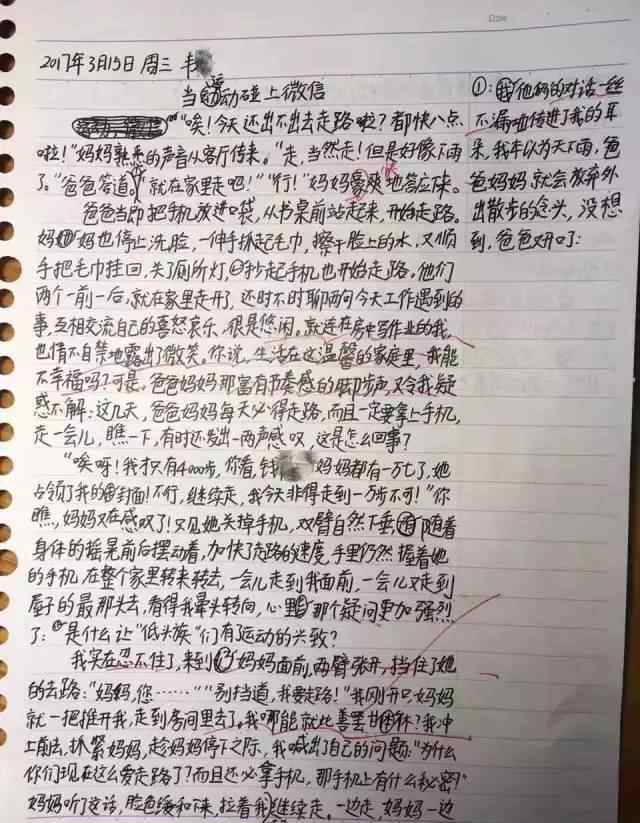 2017年3月15日 周三 韦
当运动碰上微信
“唉！今天还出不出去走路啦？都快八点
啦！”妈妈熟悉的声音从客厅传来。“走，当然走！但是好像下雨
了。”爸爸答道，“就在家里走吧！”“行！”妈妈豪爽地答应下来。
爸爸当即把手机放进口袋，从书桌前站起来，开始走路。
妈妈也停止洗脸，一伸手抓起毛巾，擦干脸上的水，又顺
手把毛巾挂回，关了厕所灯，抄起手机也开始走路。他们
两个一前一后，就在家里走开了，还时不时聊两句今天工作遇到的
事，互相交流自己的喜怒哀乐，很是悠闲。就连在房中写作业的我，
也情不自禁地露出了微笑。你说，生活在这温馨的家庭里，我能
不幸福吗？可是，爸爸妈妈那富有节奏感的脚步声，又令我疑
惑不解：这几天，爸爸妈妈每天必得走路，而且一定要拿上手机，
走一会儿，瞧一下，有时还发出一两声感叹，这是怎么回事？
“唉呀！我才只有4000步，你看，钱妈妈都有一万七了，她
占领了我的封面！不行，继续走，我今天非得走到一万步不可！”你
瞧，妈妈又在感叹了！只见她关掉手机，双臂自然下垂，随着
身体的摇晃前后摆动着，加快了走路的速度，手里仍然握着她
的手机，在整个家里转来转去，一会儿走到我面前，一会儿又走到
屋子的最那头去，看得我晕头转向，心里那个疑问更加强烈
了：是什么让“低头族”们有了运动的兴致？
我实在忍不住了，来到妈妈面前，两臂张开，挡住了她
的去路：“妈妈，您……”“别挡道，我要走路！”我刚开口，妈妈
就一把推开我，走到房间里去了。我哪能就此善罢甘休？我冲
上前去，抓紧妈妈，趁妈妈停下之际，我喊出了自己的问题：“为什么
你们现在这么爱走路了？而且还必拿手机，那手机上有什么秘密？”
妈妈听了这话，脸色缓和下来，拉着我继续走。一边走，妈妈一边
①：他俩的对话一丝
不漏地传进了我的耳
朵，我本以为天下雨，爸
爸妈妈就会放弃外
出散步的念头，没想
到，爸爸又开口了：